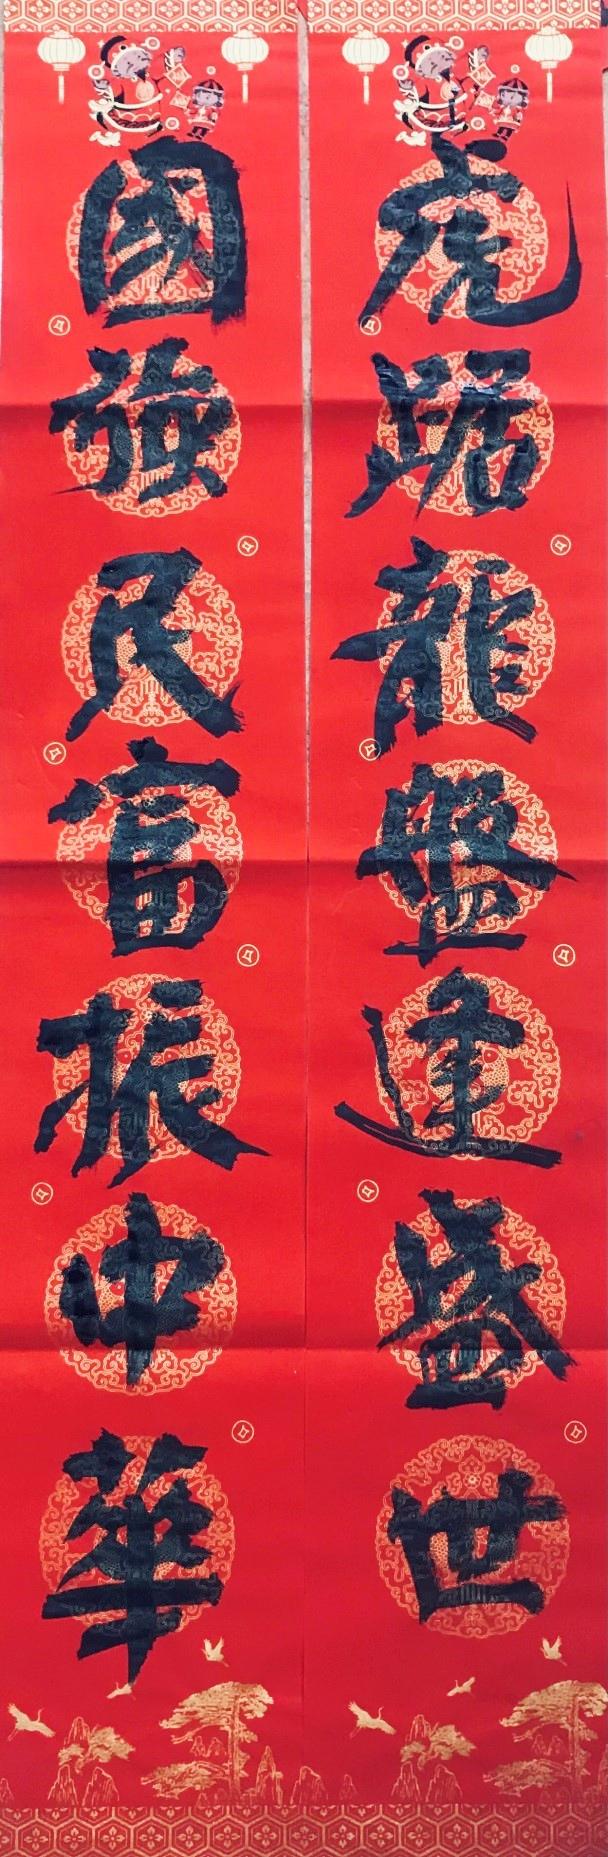 虎踞龍盤達盛世
國強民富振中華